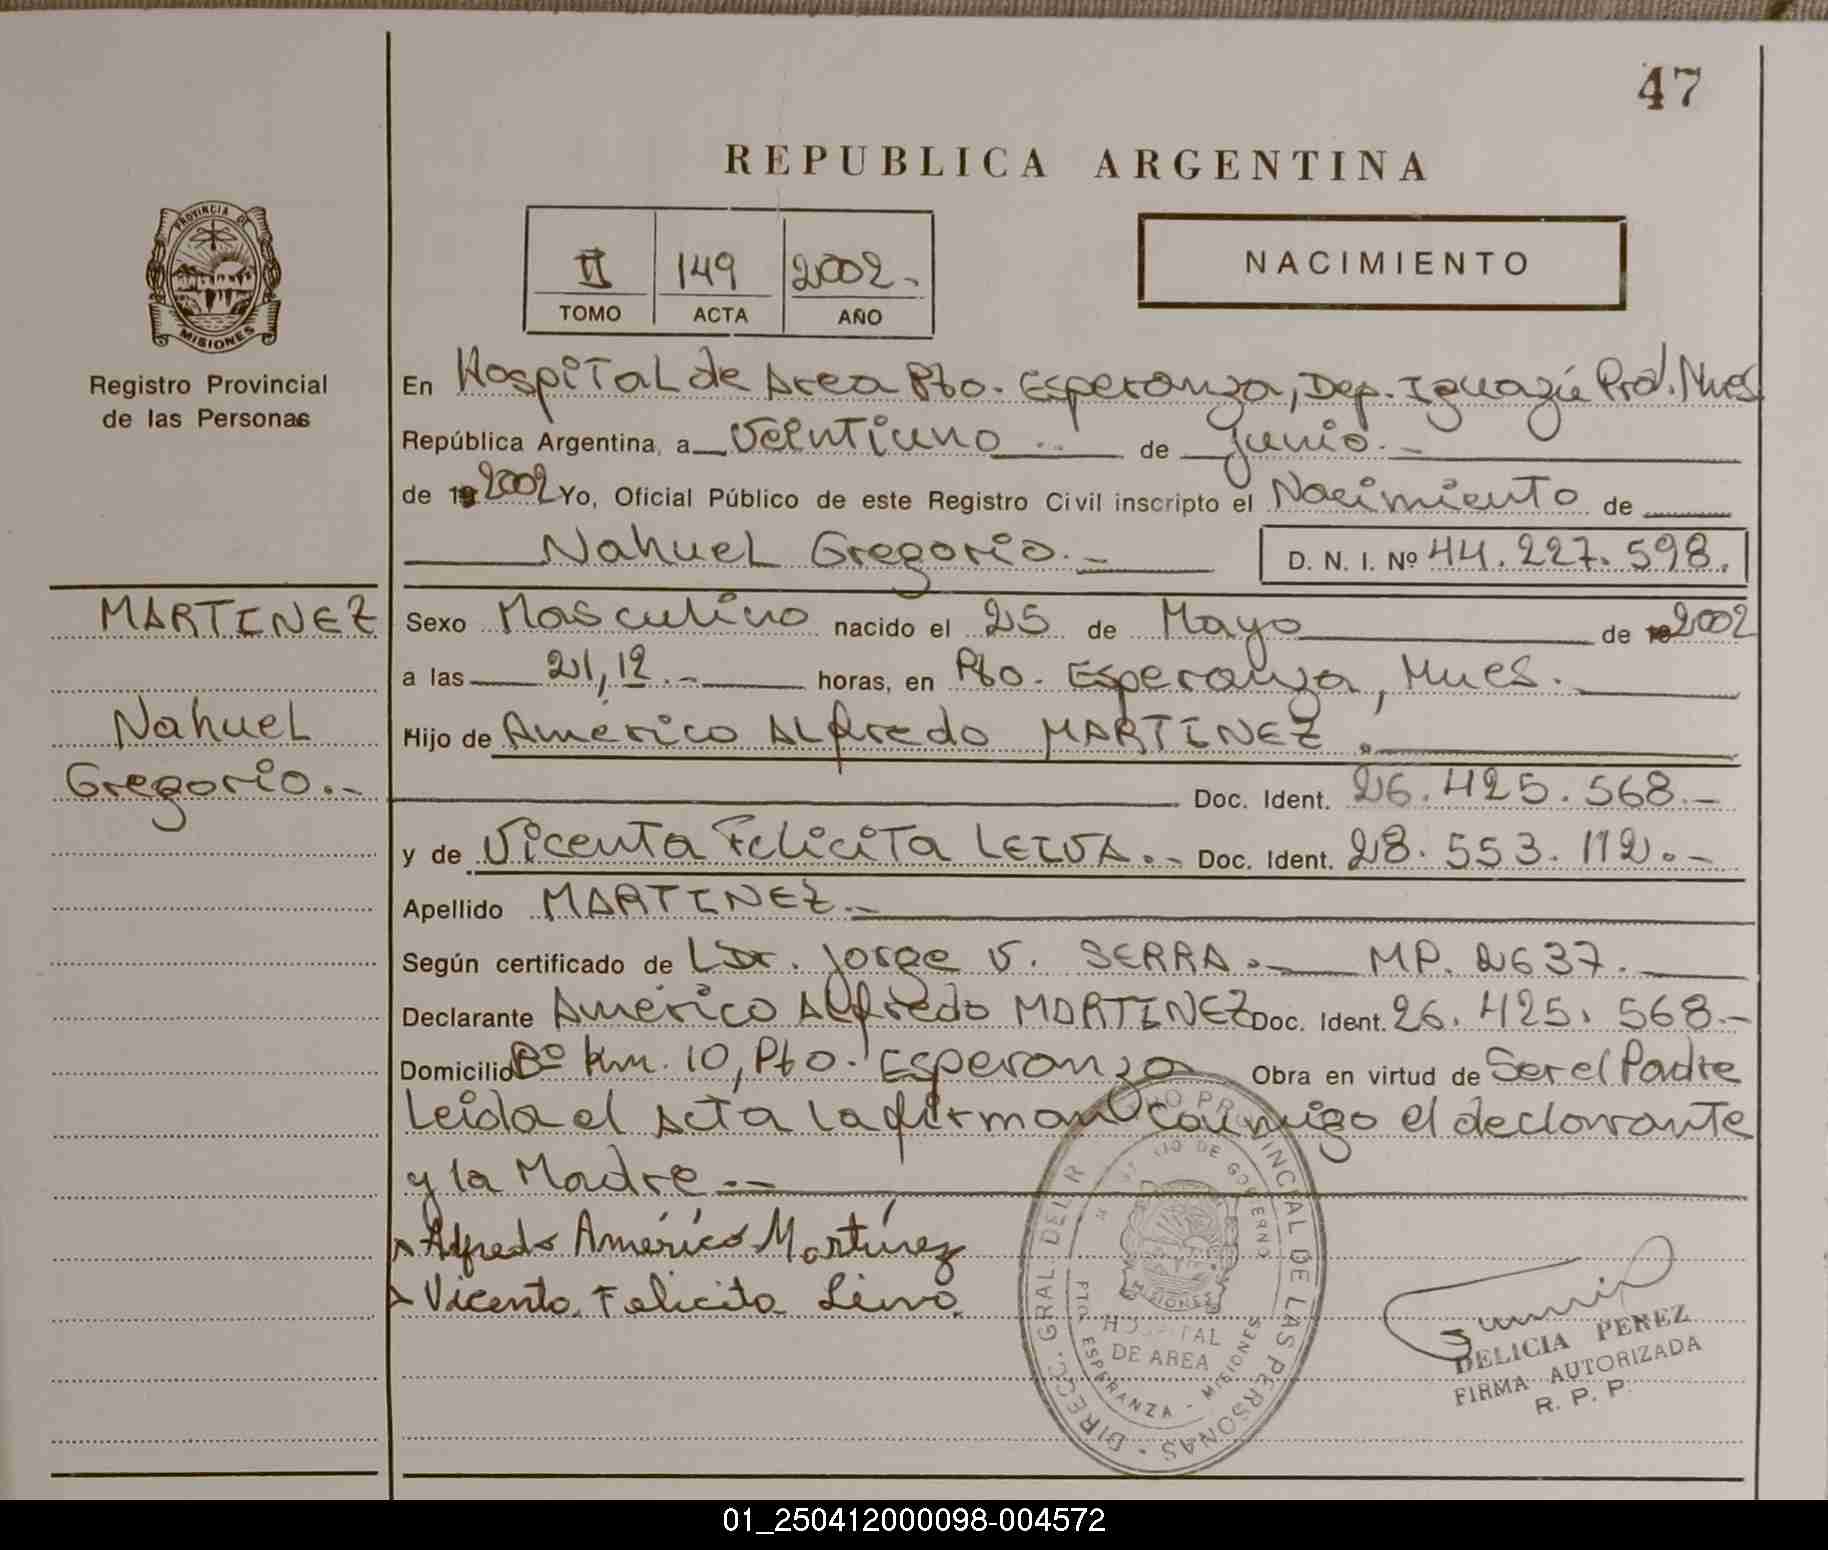 47
REPUBLICA ARGENTINA
PROVINCIA DE
MISIONES
Registro Provincial
de las Personas
II 149 2002.-
TOMO ACTA AÑO
NACIMIENTO
En Hospital de Area Pto. Esperanza, Dep. Iguazú Prov. Mnes
República Argentina, a Veintiuno .. de junio.-
de 19 2002 Yo, Oficial Público de este Registro Civil inscripto el Nacimiento de
Nahuel Gregorio.-
D. N. I. Nº 44.227.598.
MARTINEZ
Nahuel
Gregorio.-
Sexo Masculino nacido el 25 de Mayo de 19 2002
a las 21,12.- horas, en Pto. Esperanza, Mnes.
Hijo de Américo Alfredo MARTINEZ.
Doc. Ident. 26.425.568.-
y de Vicenta Felicita LEIVA.- Doc. Ident. 28.553.112.-
Apellido MARTINEZ.-
Según certificado de Dr. Jorge V. SERRA.- MP. 2637.
Declarante Américo Alfredo MARTINEZ Doc. Ident. 26.425.568-
Domicilio Bº Km. 10, Pto. Esperanza Obra en virtud de Ser el Padre
Leida el Acta la firman conmigo el declarante
y la Madre --
Alfredo Américo Martínez
Vicenta Felicita Leiva
DIRECC. GRAL. DEL R PROVINCIAL DE LAS PERSONAS
DE GOBIERNO
MISIONES
HOSPITAL
DE AREA
PTO. ESPERANZA - MISIONES
DELICIA PEREZ
FIRMA AUTORIZADA
R. P. P.
01_250412000098-004572